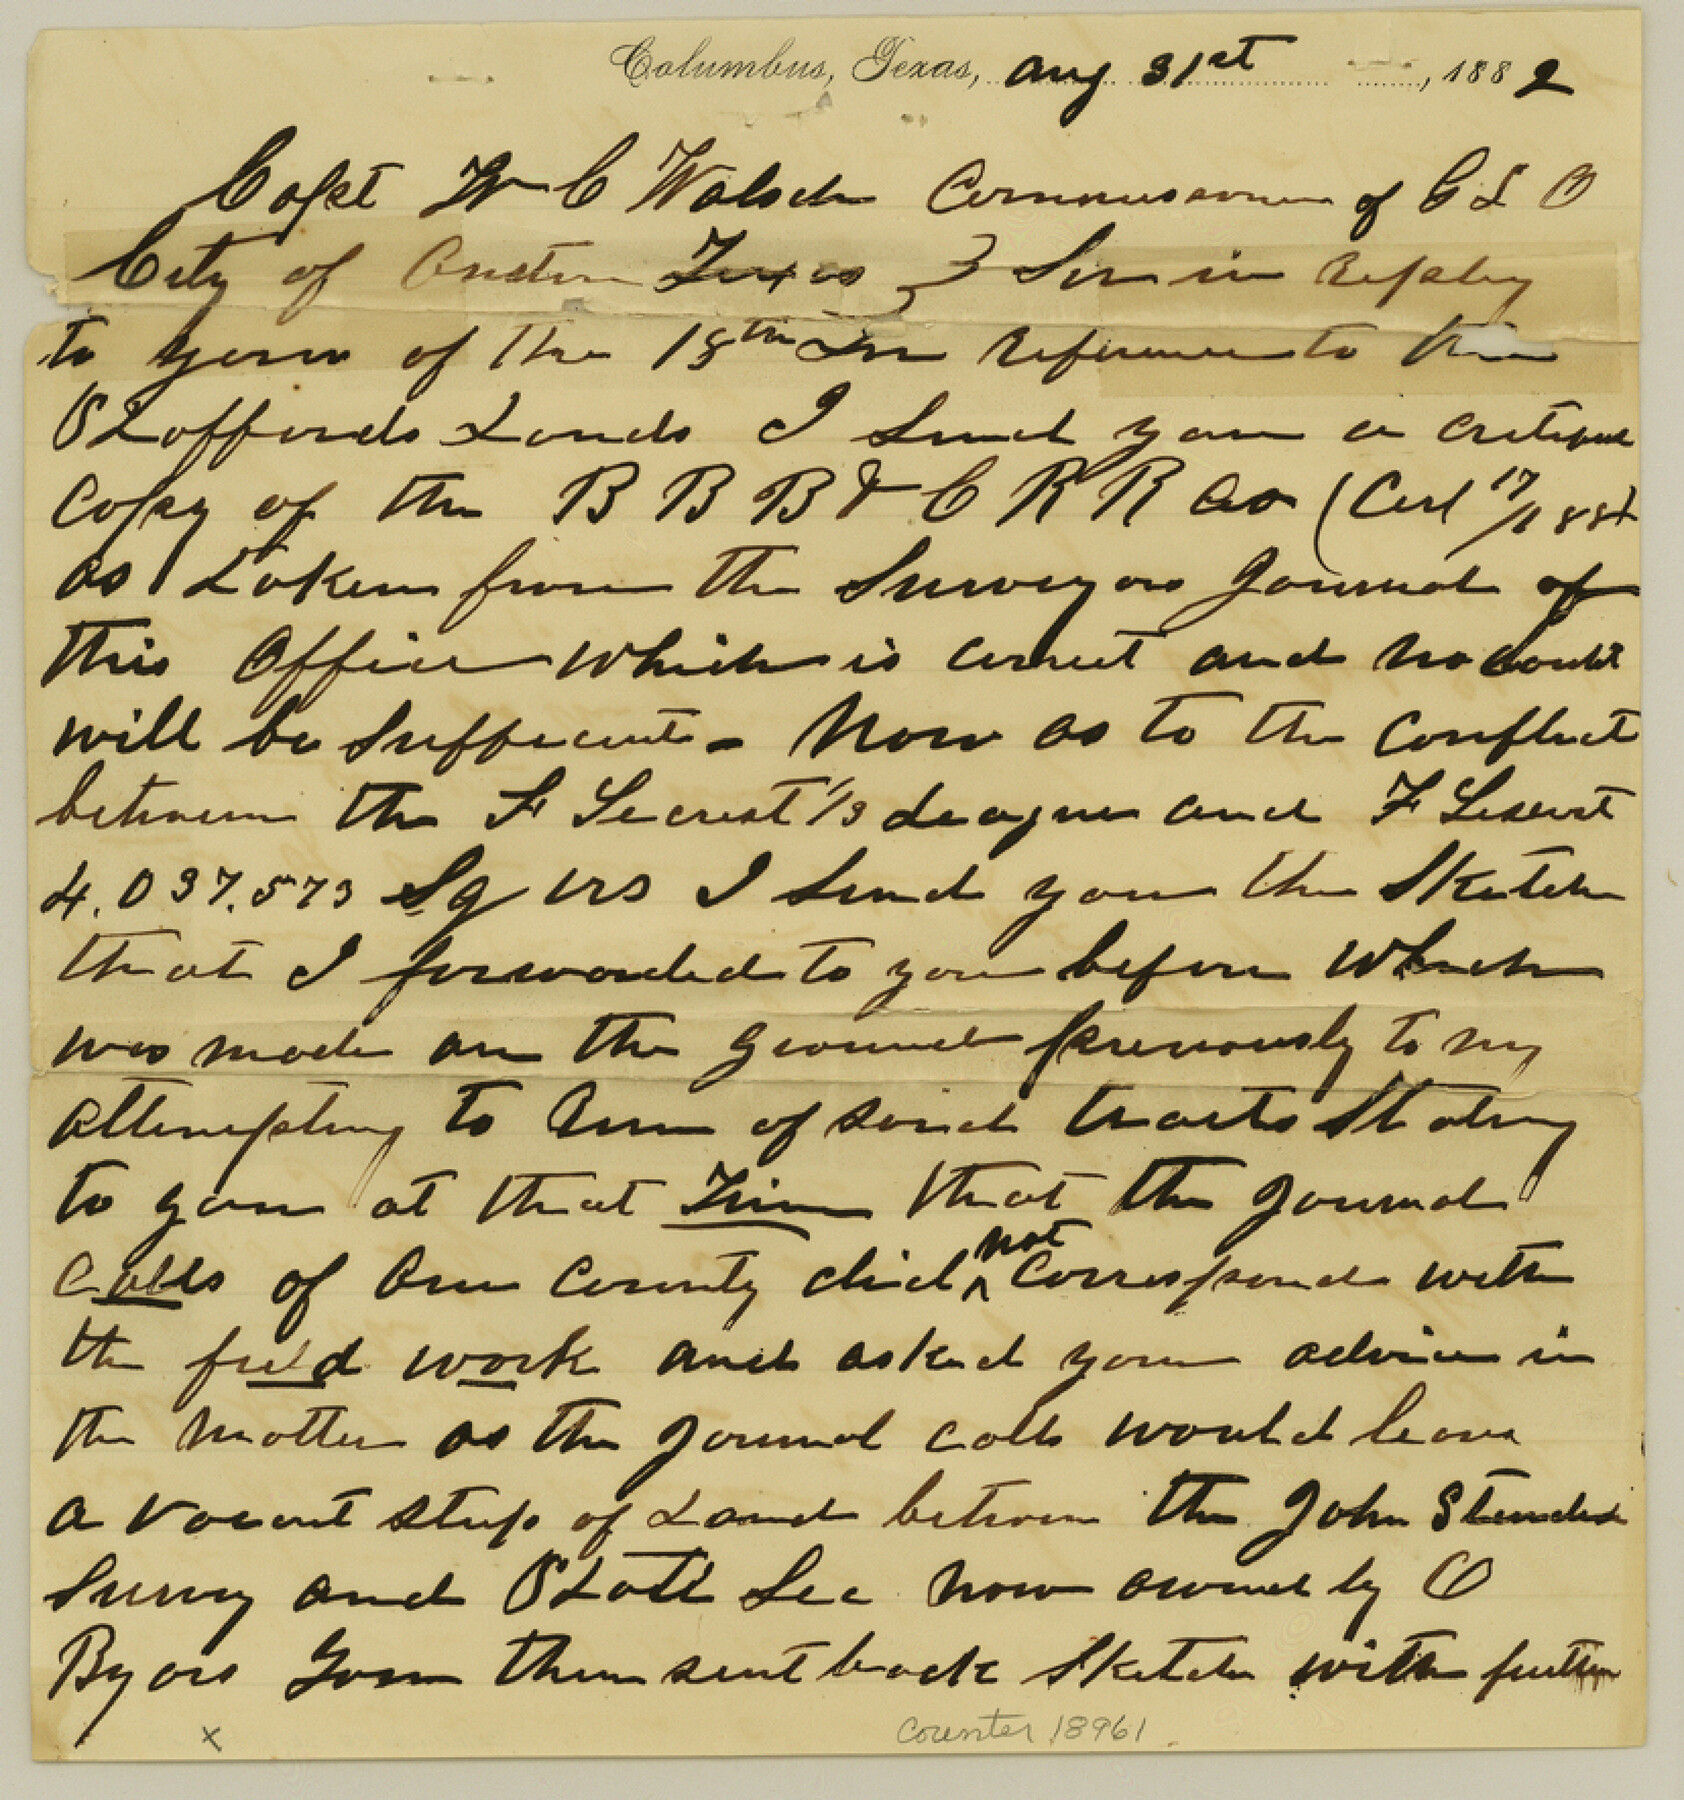 Columbus, Texas, Aug 31st, 1882
Capt W C Walsch Commissioner of G L O
City of Austin Texas } Sir in Repley
to yours of the 18th In Reference to the
Staffords Lands I Send you a
Copy of the B B B & C R R Co (Cert 17/
as Taken from the Surveyors Journal of
this Office which is correct and no doubt
will be Sufficient - Now as to the Conflict
between the F Secrest 1/3 League and F Secrest
4.037.573 Sq vrs I Send you the Sketch
that I forwarded to you before Which
was made on the Ground previously to my
attempting to Run of said tracts Stating
to you at that Time that the Journal
Calls of Our County did not Correspond with
the field work and asked your advice in
the matter as the Journal calls would leave
a Vacant strip of Land between the John
Survey and State Sec now owned by O
Byars You then sent back Sketch with further
x
Counter 18961